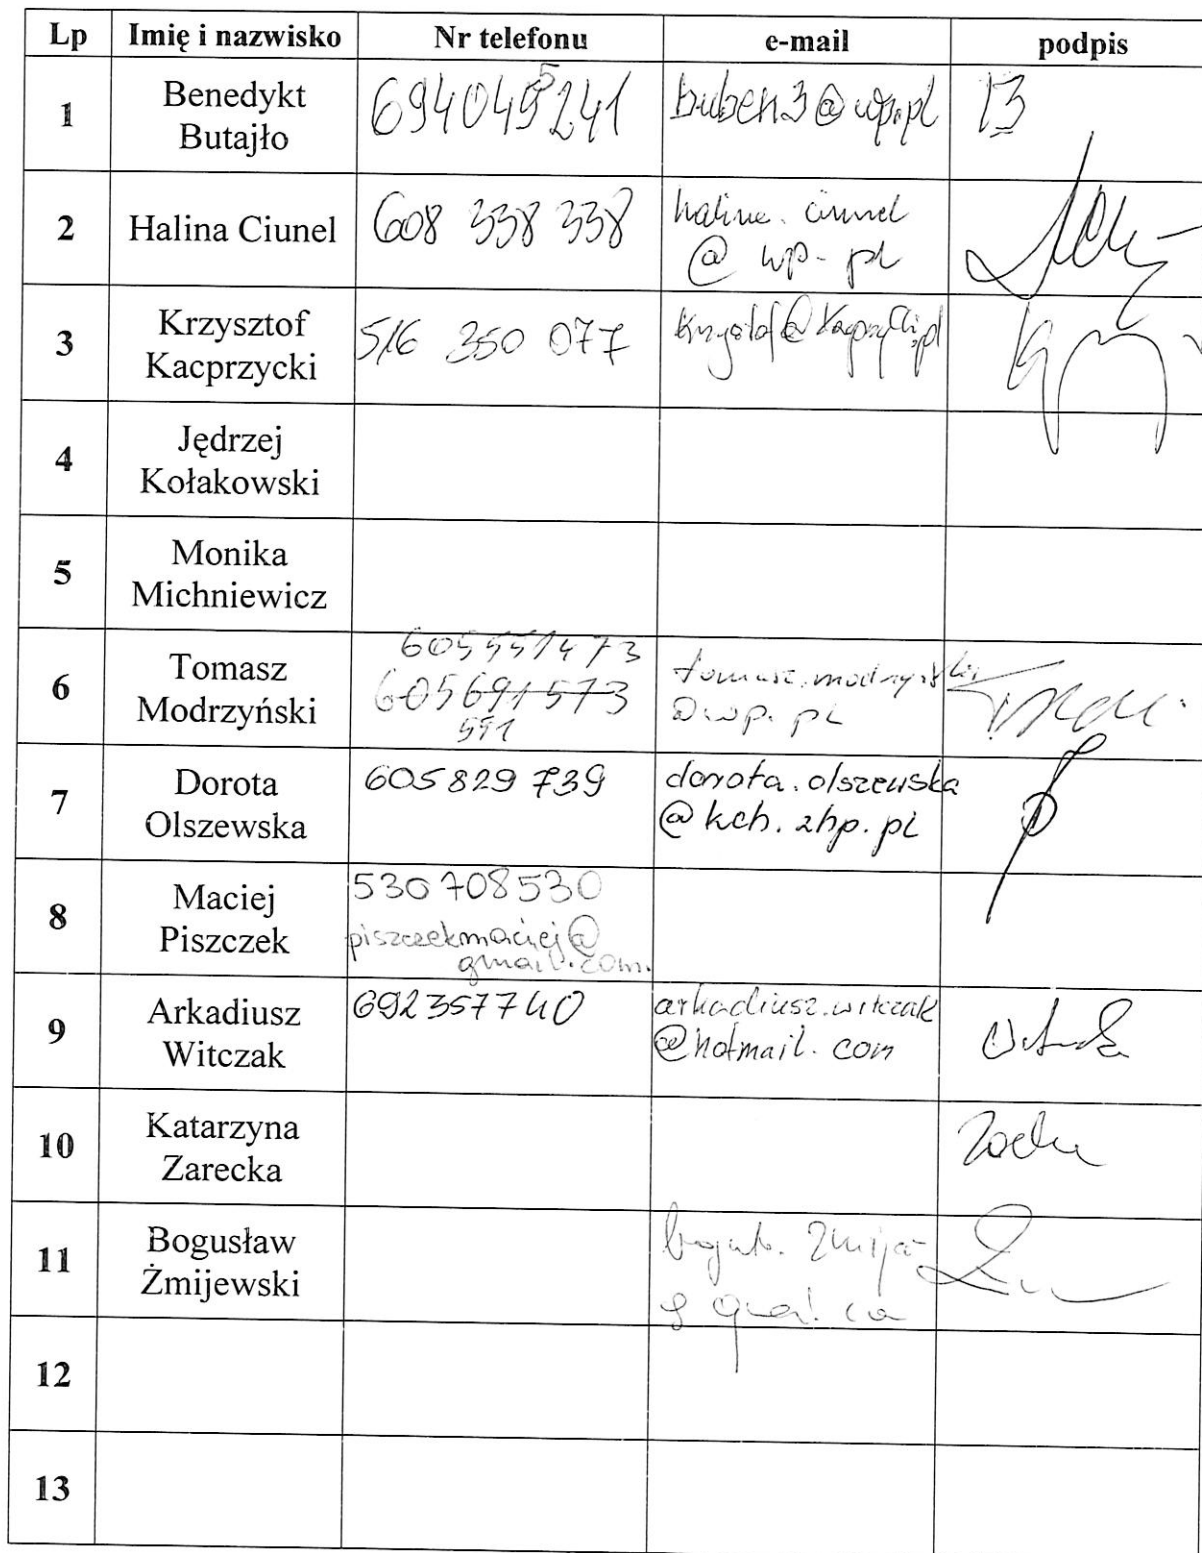 Lp Imię i nazwisko Nr telefonu e-mail podpis
1 Benedykt Butajło 694045241 buben3@wp.pl
2 Halina Ciunel 608 338 338 halina.ciunel
@ wp.pl
3 Krzysztof Kacprzycki 516 350 077
4 Jędrzej Kołakowski
5 Monika Michniewicz
6 Tomasz Modrzyński 605551473
605691573
551
@wp.pl
7 Dorota Olszewska 605 829 739 dorota.olszewska
@kch.zhp.pl
8 Maciej Piszczek 530708530
piszczekmaciej@
gmail.com
9 Arkadiusz Witczak 692357740 arkadiusz.witczak
@hotmail.com
10 Katarzyna Zarecka
11 Bogusław Żmijewski
12
13